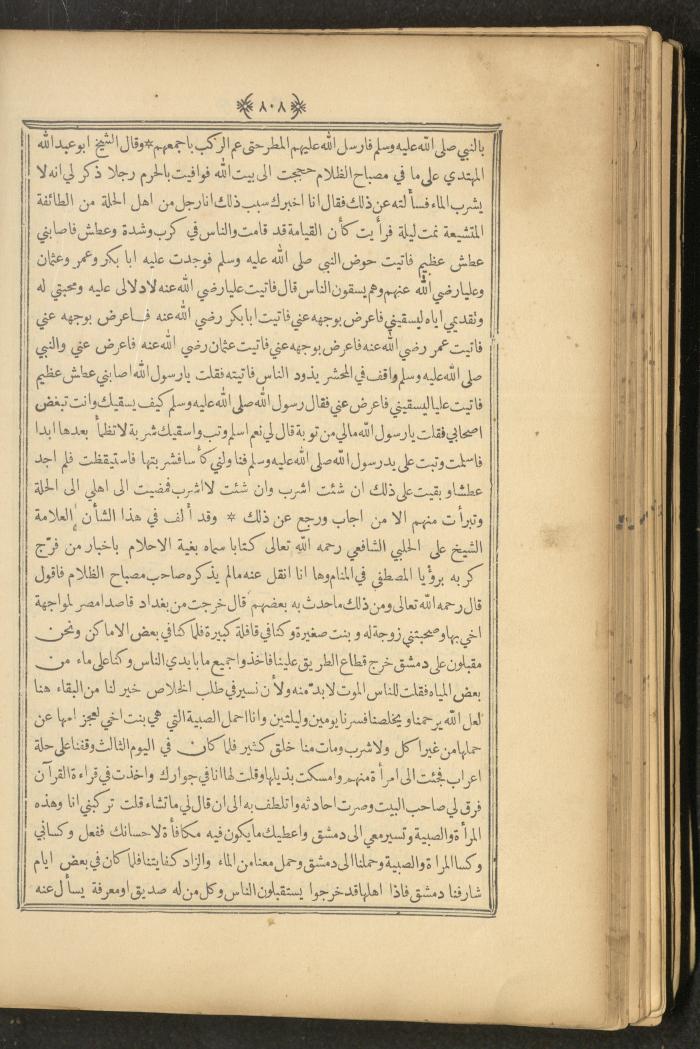 ﴿٨٠٨﴾
بالنبي صلى الله عليه وسلم فارسل الله عليهم المطر حتى عم الركب باجمعهم * وقال الشيخ ابو عبدالله
المهتدي على ما في مصباح الظلام حججت الى بيت الله فوافيت بالحرم رجلا ذكر لي انه لا
يشرب الماء فسألته عن ذلك فقال انا اخبرك سبب ذلك انا رجل من اهل الحلة من الطائفة
المتشيعة نمت ليلة فرأيت كأن القيامة قد قامت والناس في كرب وشدة وعطش فاصابني
عطش عظيم فاتيت حوض النبي صلى الله عليه وسلم فوجدت عليه ابا بكر وعمر وعثمان
وعليا رضي الله عنهم وهم يسقون الناس قال فاتيت عليا رضي الله عنه لادلالي عليه ومحبتي له
وتقديمي اياه ليسقيني فاعرض بوجهه عني فاتيت ابا بكر رضي الله عنه فاعرض بوجهه عني
فاتيت عمر رضي الله عنه فاعرض بوجهه عني فاتيت عثمان رضي الله عنه فاعرض عني والنبي
صلى الله عليه وسلم واقف في المحشر يذود الناس فاتيته فقلت يا رسول الله اصابني عطش عظيم
فاتيت عليا ليسقيني فاعرض عني فقال رسول الله صلى الله عليه وسلم كيف يسقيك وانت تبغض
اصحابي فقلت يا رسول الله مالي من توبة قال لي نعم اسلم وتب واسقيك شربة لا تظمأ بعدها ابدا
فاسلمت وتبت على يد رسول الله صلى الله عليه وسلم فناولني كأسا فشربتها فاستيقظت فلم اجد
عطشا وبقيت على ذلك ان شئت اشرب وان شئت لا اشرب فمضيت الى اهلي الى الحلة
وتبرأت منهم الا من اجاب ورجع عن ذلك * وقد ألف في هذا الشأن العلامة
الشيخ على الحلبي الشافعي رحمه الله تعالى كتابا سماه بغية الاحلام باخبار من فرّج
كربه برؤيا المصطفى في المنام وها انا انقل عنه مالم يذكره صاحب مصباح الظلام فاقول
قال رحمه الله تعالى ومن ذلك ما حدث به بعضهم قال خرجت من بغداد قاصدا مصر لمواجهة
اخي بها وصحبتني زوجة له وبنت صغيرة وكنا في قافلة كبيرة فلما كنا في بعض الاماكن ونحن
مقبلون على دمشق خرج قطاع الطريق علينا فاخذوا جميع ما بايدي الناس وكنا على ماء من
بعض المياه فقلت للناس الموت لا بدّ منه ولأن نسير في طلب الخلاص خير لنا من البقاء هنا
لعل الله يرحمنا ويخلصنا فسرنا يومين وليلتين وانا احمل الصبية التي هي بنت اخي لعجز امها عن
حملها من غير اكل ولا شرب ومات منا خلق كثير فلما كان في اليوم الثالث وقفنا على حلة
اعراب فجئت الى امرأة منهم وامسكت بذيلها وقلت لها انا في جوارك واخذت في قراءة القرآن
فرق لي صاحب البيت وصرت احادثه واتلطف به الى ان قال لي ما تشاء قلت تركبني انا وهذه
المرأة والصبية وتسير معي الى دمشق واعطيك ما يكون فيه مكافأة لاحسانك ففعل وكساني
وكسا المرأة والصبية وحملنا الى دمشق وحمل معنا من الماء والزاد كفايتنا فلما كان في بعض ايام
شارفنا دمشق فاذا اهلها قد خرجوا يستقبلون الناس وكل من له صديق او معرفة يسأل عنه